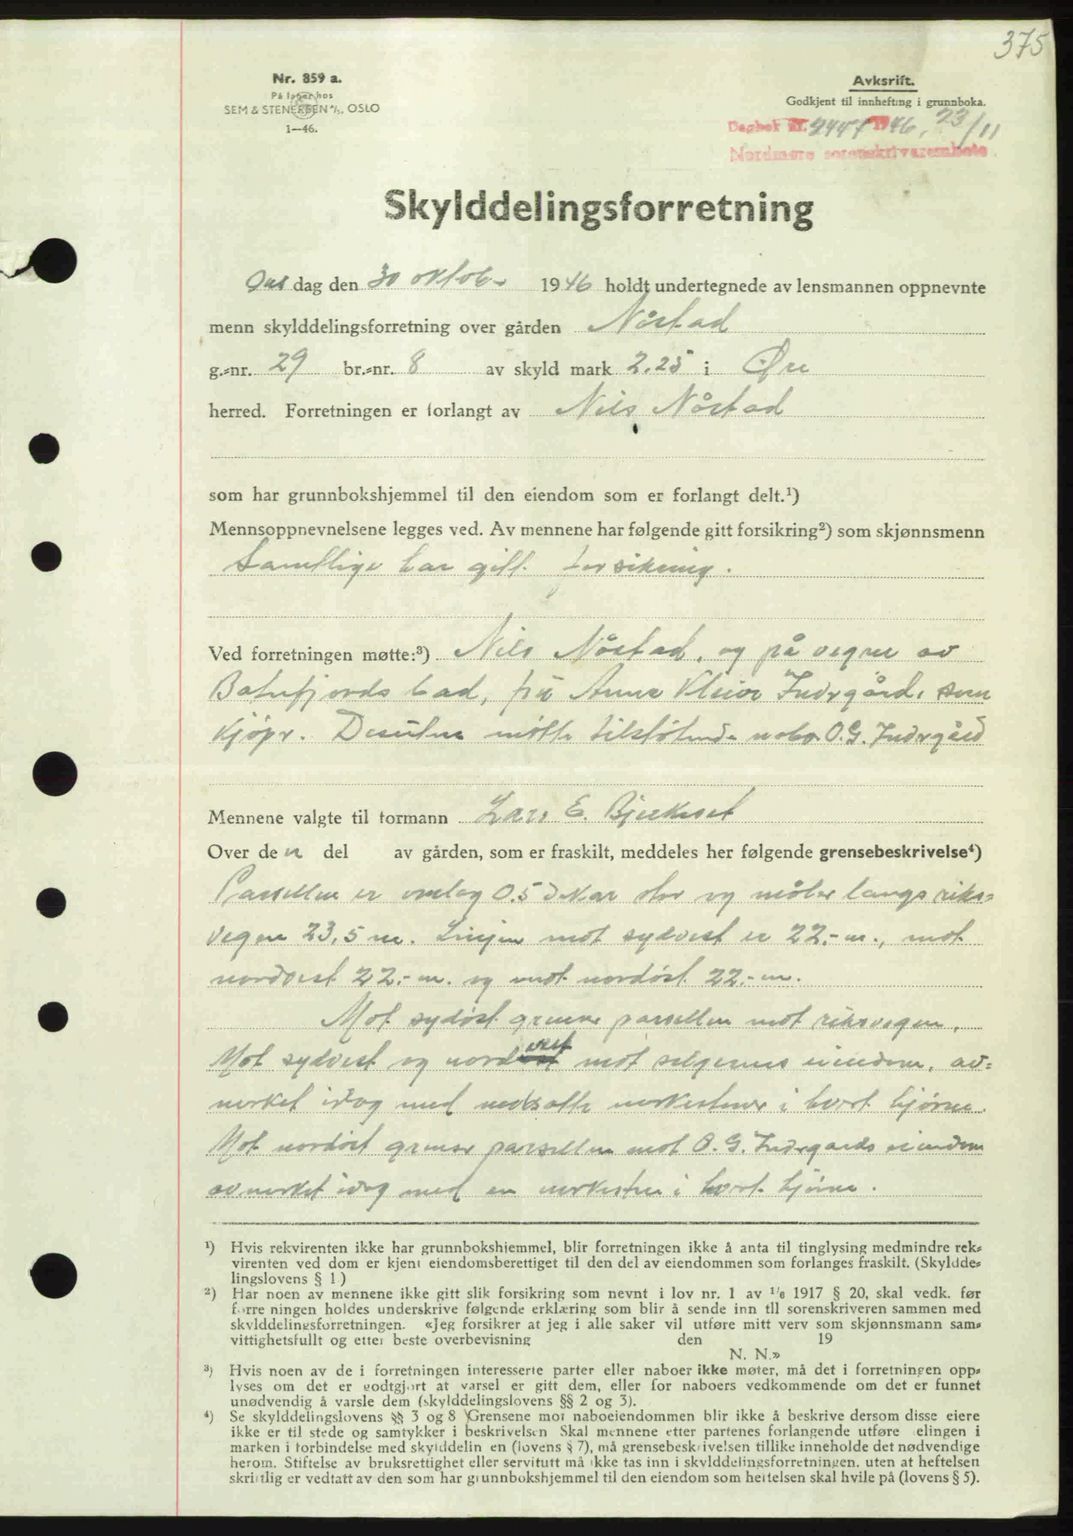 375
Nr. 859 a.
På lager hos
SEM & STENERSEN A/S, OSLO
1—46.
Avksrift.
Godkjent til innhefting i grunnboka.
Dagbok nr. 2447 1946, 23/11
Nordmøre sorenskrivarembete
Skylddelingsforretning
dag den 30 oktob. 1946 holdt undertegnede av lensmannen oppnevnte
menn skylddelingsforretning over gården Nåstad
g.-nr. 29 br.-nr. 8 av skyld mark 2.25 i Øre
herred. Forretningen er forlangt av Nils Nåstad
som har grunnbokshjemmel til den eiendom som er forlangt delt.¹)
Mennsoppnevnelsene legges ved. Av mennene har følgende gitt forsikring²) som skjønnsmenn
Samtlige har gitt forsikring.
Ved forretningen møtte:³) Nils Nåstad, og på vegne av
Batnfjords bad, frk Anna Indrgård, som
kjøpr. Desuten møtte tilstøtende nabo O.G. Indrgård
Mennene valgte til formann Lars E. Bjerkeset
Over den del av gården, som er fraskilt, meddeles her følgende grensebeskrivelse⁴)
Parsellen er omlag 0.5 dekar stor og måler langs riks-
vegen 23,5 m. Linjen mot sydvest er 22,- m., mot
nordvest 22,- m. og mot nordøst 22,- m.
Mot sydøst grenser parsellen mot riksvegen.
Mot sydvest og nordvest mot selgerens eiendom, av-
merket idag med nedsatte merkestener i hvert hjørne.
Mot nordøst grenser parsellen mot O. G. Indrgaards eiendom
avmerket idag med en merkesten i hvert hjørne.
¹) Hvis rekvirenten ikke har grunnbokshjemmel, blir forretningen ikke å anta til tinglysing medmindre rek-
virenten ved dom er kjent eiendomsberettiget til den del av eiendommen som forlanges fraskilt. (Skyldde-
lingslovens § 1)
²) Har noen av mennene ikke gitt slik forsikring som nevnt i lov nr. 1 av 1/6 1917 § 20, skal vedk. før
forretningen holdes underskrive følgende erklæring som blir å sende inn til sorenskriveren sammen med
skylddelingsforretningen. «Jeg forsikrer at jeg i alle saker vil utføre mitt verv som skjønnsmann sam-
vittighetsfullt og etter beste overbevisning den 19
N. N.»
³) Hvis noen av de i forretningen interesserte parter eller naboer ikke møter, må det i forretningen opp-
lyses om det er godtgjort at varsel er gitt dem, eller for naboers vedkommende om det er funnet
unødvendig å varsle dem (skylddelingslovens §§ 2 og 3).
⁴) Se skylddelingslovens §§ 3 og 8 Grensene mot naboeiendommen blir ikke å beskrive dersom disse eiere
ikke er til stede og samtykker i beskrivelsen Skal mennene etter partenes forlangende utføre delingen i
marken i forbindelse med skylddelingen (lovens § 7), må grensebeskrivelsen tillike inneholde det nødvendige
herom. Stiftelse av bruksrettighet eller servitutt må ikke tas inn i skylddelingsforretningen, uten at heftelsen
skriftlig er vedtatt av den som har grunnbokshjemmel til den eiendom som heftelsen skal hvile på (lovens § 5).